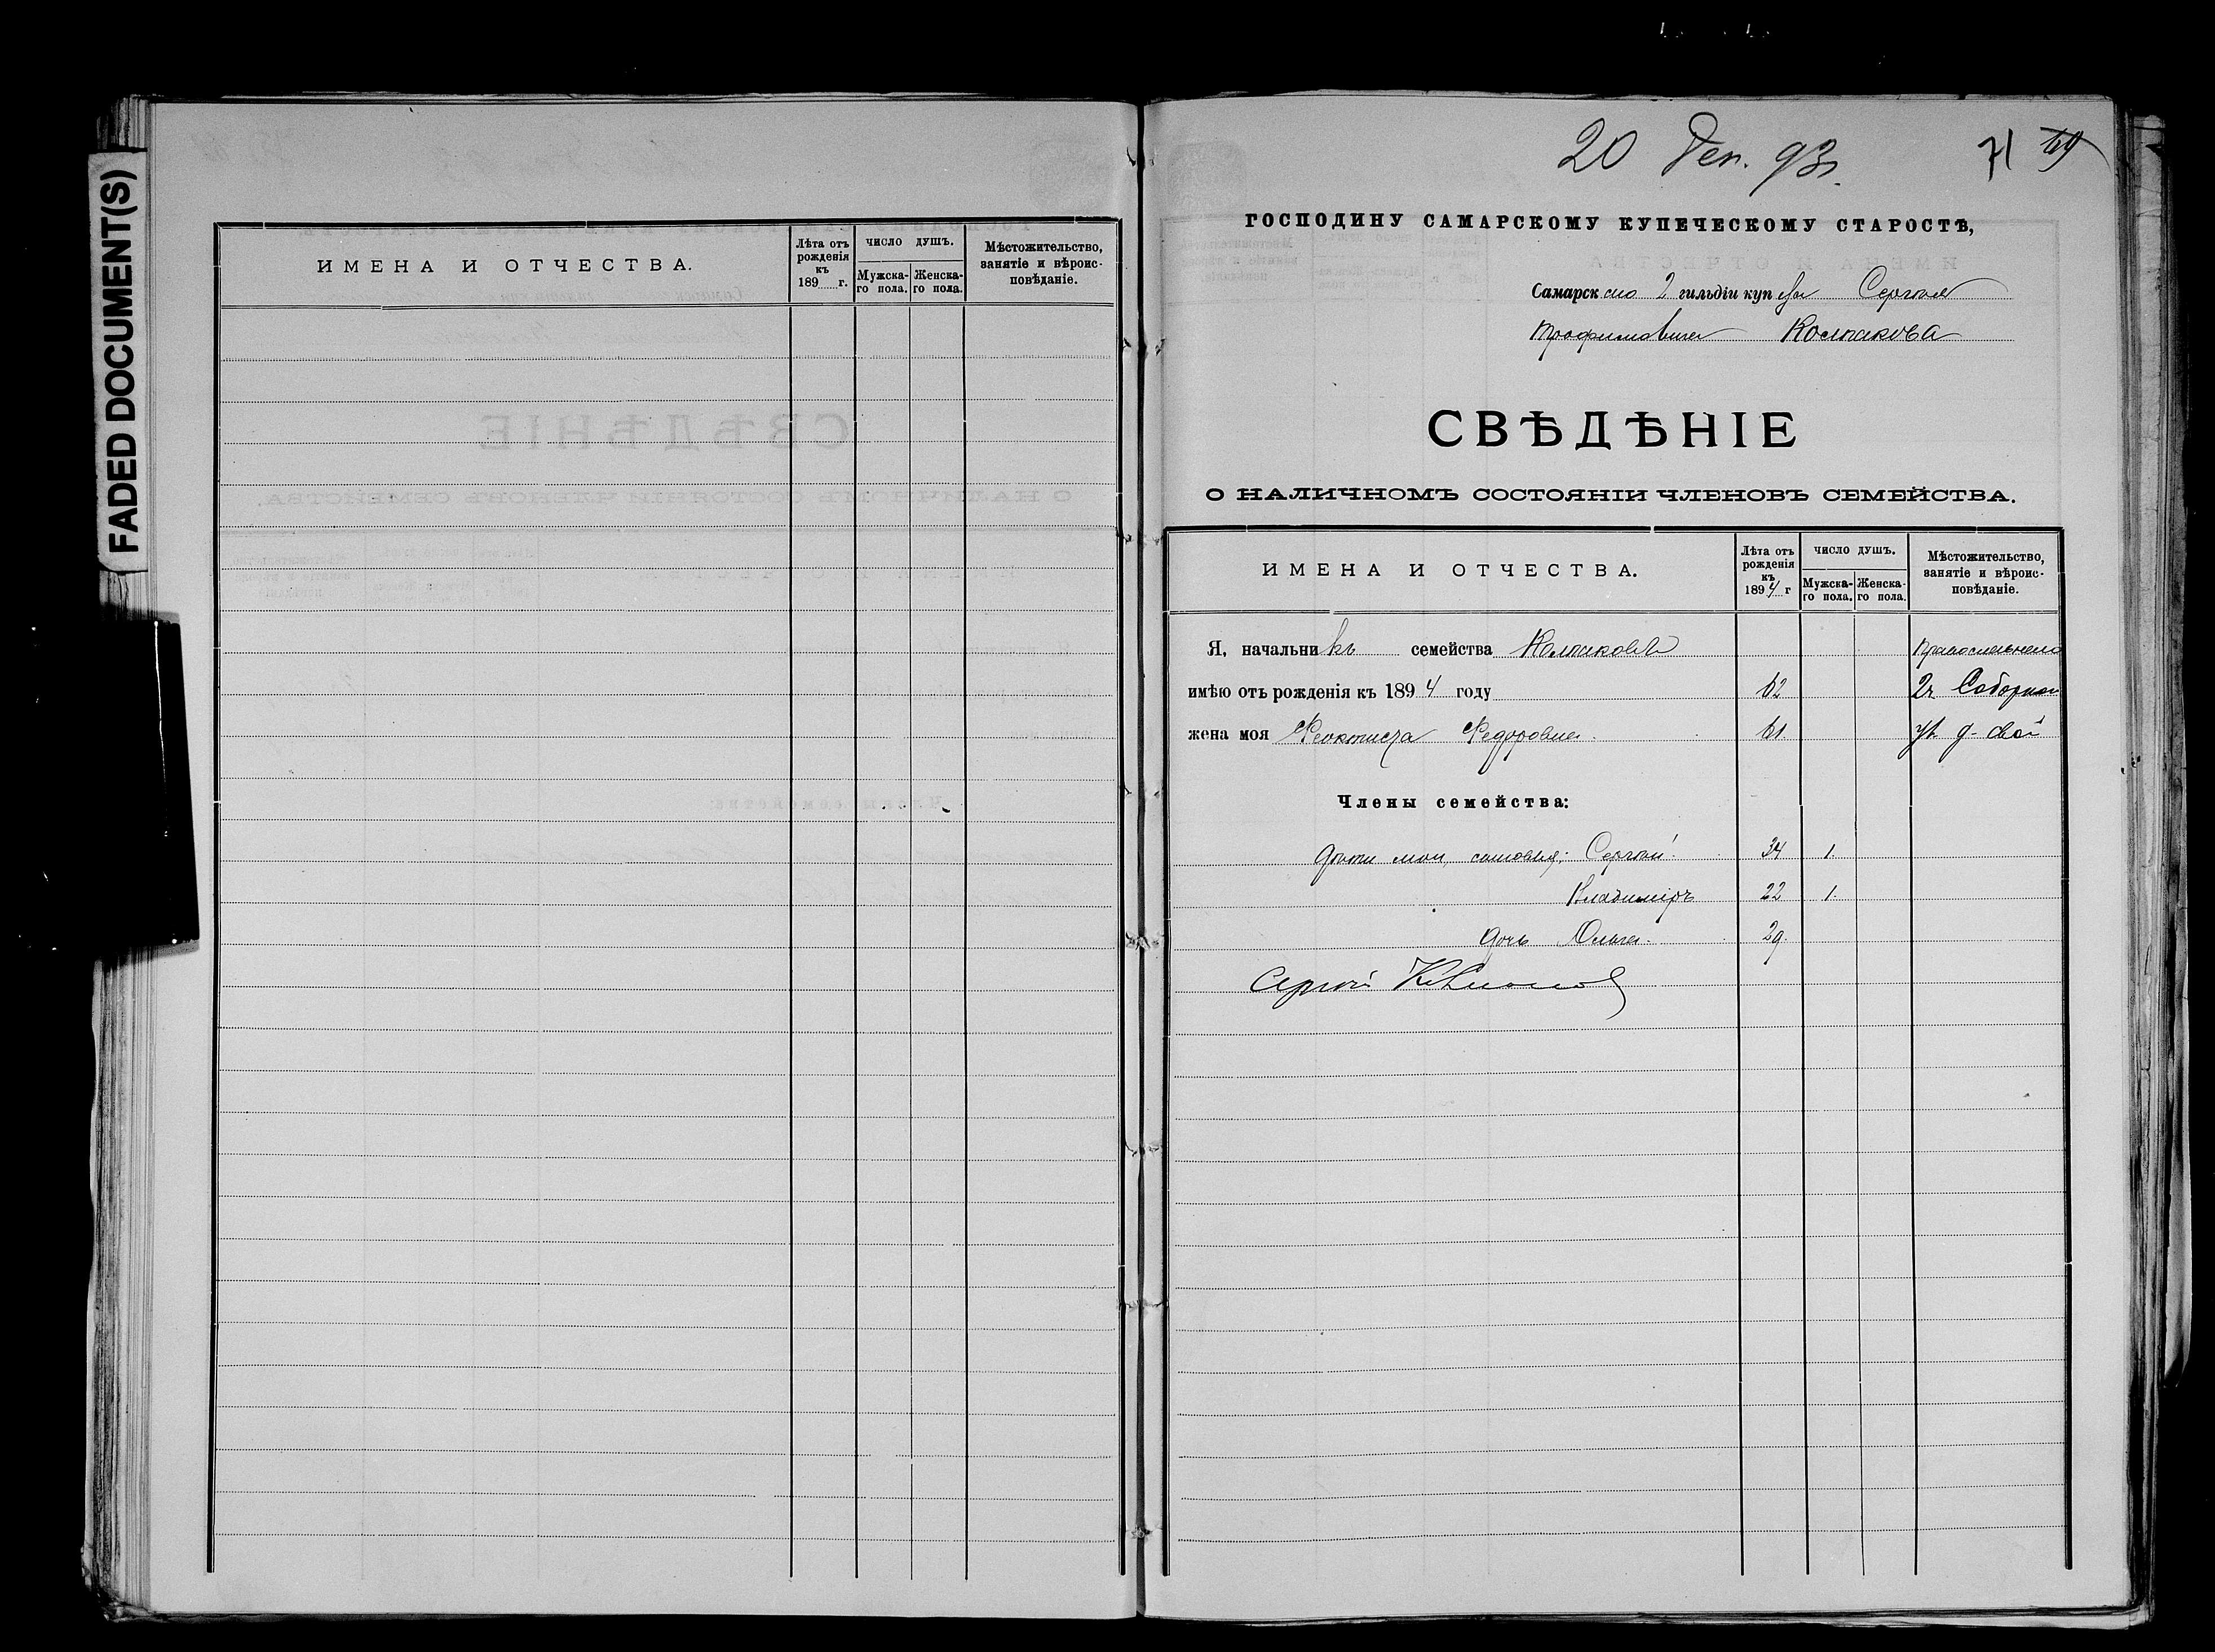 FADED DOCUMENT(S)
ИМЕНА И ОТЧЕСТВА.
Лѣта отъ рожденія къ 189 г.
ЧИСЛО ДУШЪ.
Мужска-го пола.
Женска-го пола.
Мѣстожительство, занятіе и вѣроис-повѣданіе.
20 Дек. 93г.
71 69
ГОСПОДИНУ САМАРСКОМУ КУПЕЧЕСКОМУ СТАРОСТѢ,
Самарскаго 2 гильдіи купца Сергѣя
Трофимовича Колпакова
СВѢДѢНІЕ
О НАЛИЧНОМЪ СОСТОЯНІИ ЧЛЕНОВЪ СЕМЕЙСТВА.
ИМЕНА И ОТЧЕСТВА.
Лѣта отъ рожденія къ 1894 г
ЧИСЛО ДУШЪ.
Мужска-го пола.
Женска-го пола.
Мѣстожительство, занятіе и вѣроис-повѣданіе.
Я, начальникъ семейства Колпаковъ Православнаго
имѣю отъ рожденія къ 1894 году 62 2ч. Соборной
жена моя Феоктиста Федоровна 61 ул. д. свой
Члены семейства:
Дѣти мои, сыновья: Сергѣй 34 1.
Владиміръ 22 1.
Дочь Ольга. 29.
Сергѣй Колпаковъ